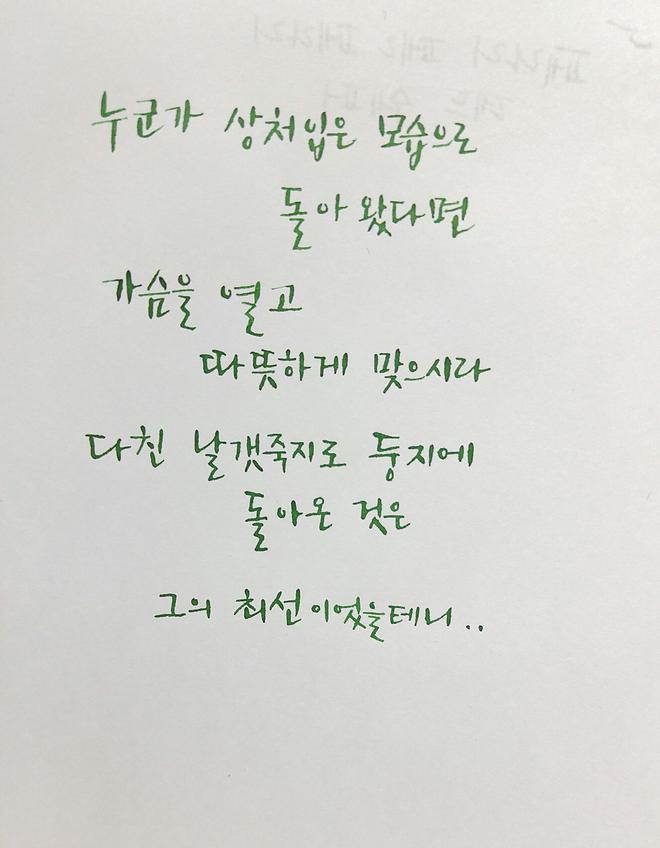 누군가 상처입은 모습으로
돌아왔다면
가슴을 열고
따뜻하게 맞으시라
다친 날갯죽지로 둥지에
돌아온 것은
그의 최선이었을테니..